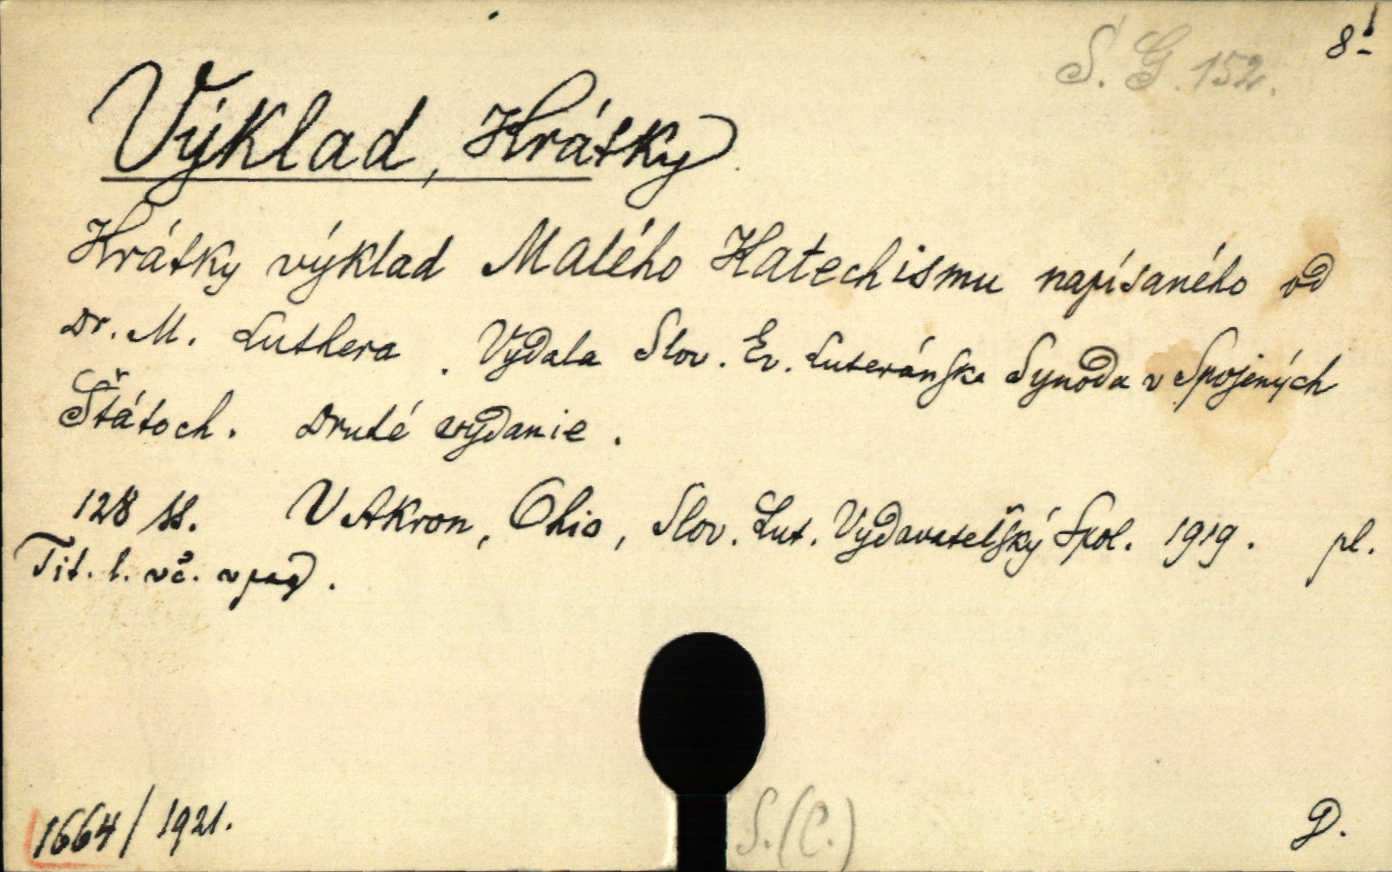 S. G. 152.
8°
Výklad, Krátky
Krátky výklad Malého Katechismu napísaného od
Dr. M. Luthera. Vydala Slov. Ev. Luteránska Synoda v Spojených
Štátoch. Druhé vydanie.
128 ss. V Akron, Ohio, Slov. Lut. Vydavateľský Spol. 1919. pl.
Tit. l. vč. v pag.
1664/1921.
S.(C.)
D.